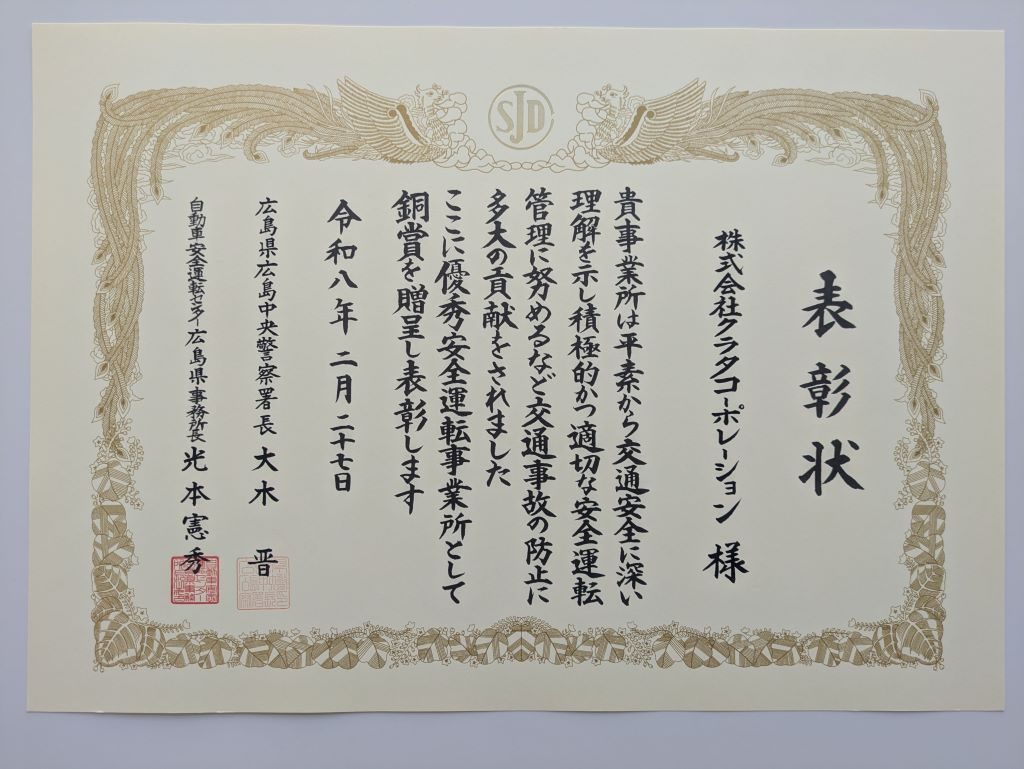 SJD
表彰状
株式会社クラタコーポレーション 様
貴事業所は平素から交通安全に深い
理解を示し積極的かつ適切な安全運転
管理に努めるなど交通事故の防止に
多大の貢献をされました
ここに優秀安全運転事業所として
銅賞を贈呈し表彰します
令和八年 二月二十七日
広島県広島中央警察署長 大木 晋
自動車安全運転センター広島県事務所長 光本憲秀